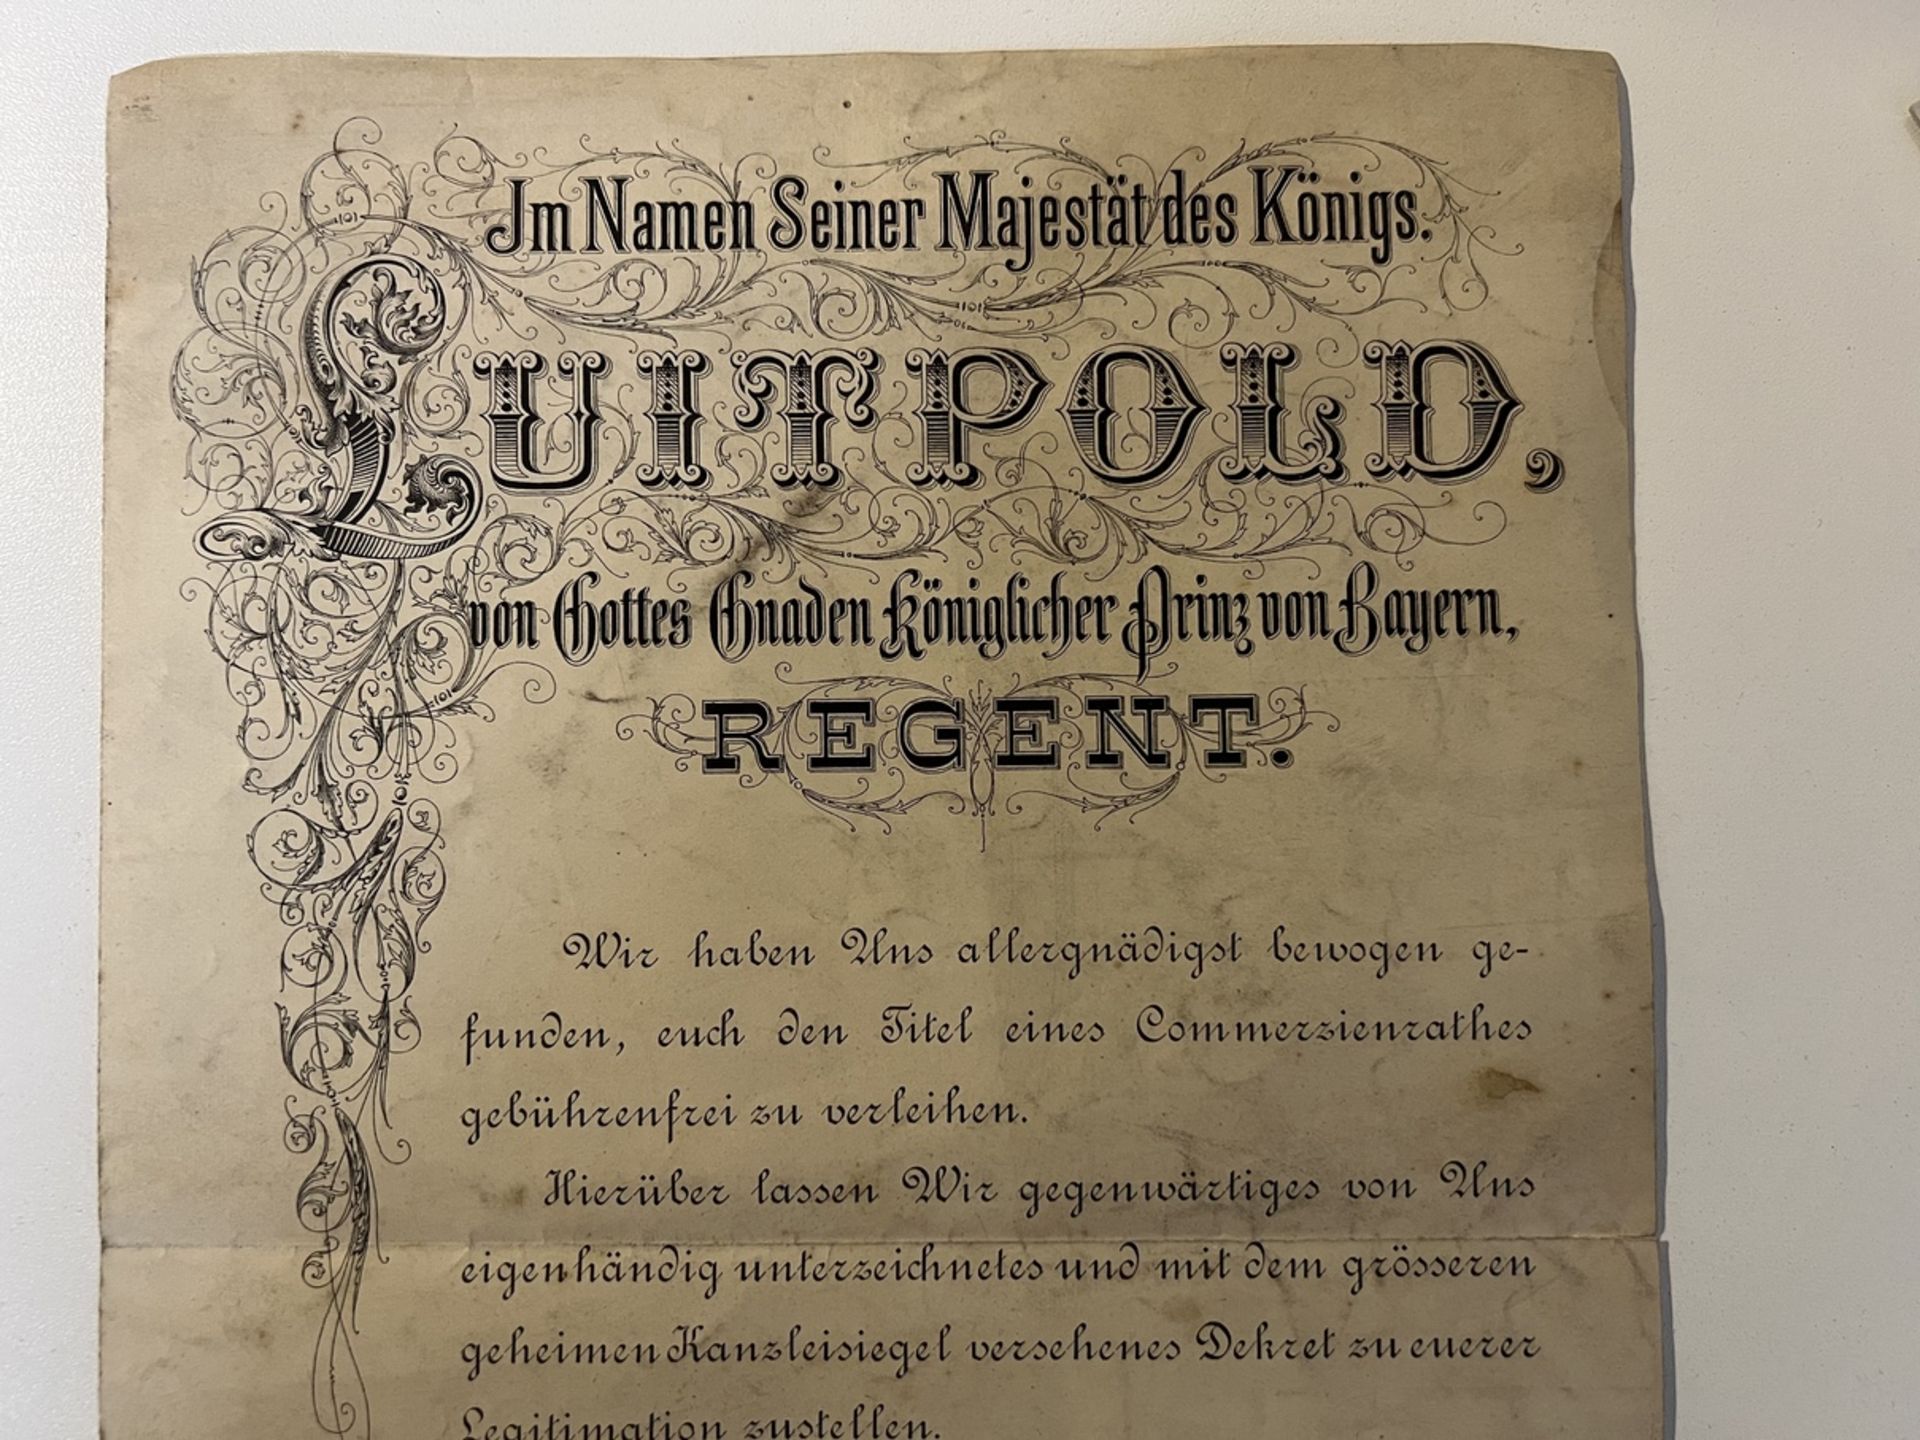 Im Namen Seiner Majestät des Königs.
LUITPOLD,
von Gottes Gnaden Königlicher Prinz von Bayern,
REGENT.
Wir haben Uns allergnädigst bewogen ge-
funden, euch den Titel eines Commerzienrathes
gebührenfrei zu verleihen.
Hierüber lassen Wir gegenwärtiges von Uns
eigenhändig unterzeichnetes und mit dem grösseren
geheimen Kanzleisiegel versehenes Dekret zu euerer
Legitimation zustellen.